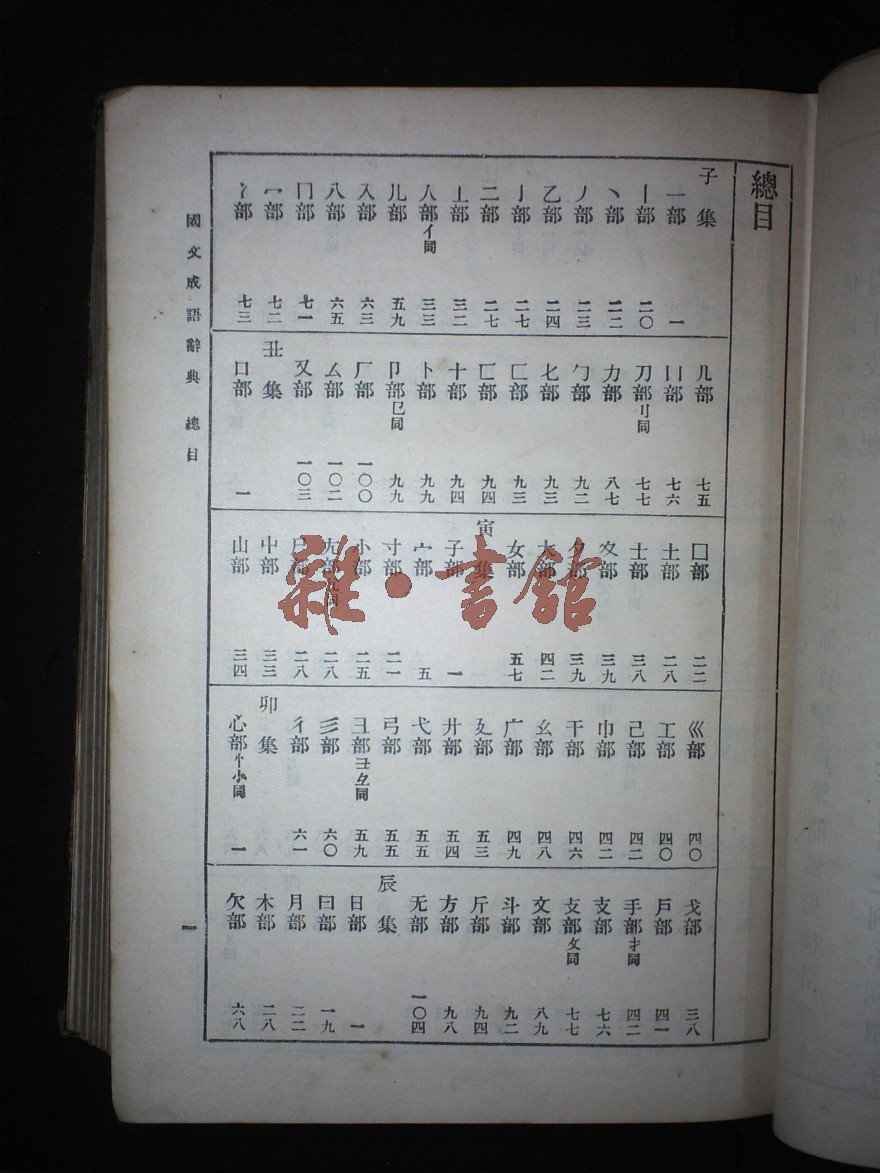 總目
子集
一部 一
丨部 二〇
丶部 二二
丿部 二三
乙部 二四
亅部 二七
二部 二七
亠部 三二
人部亻同 三三
儿部 五九
入部 六三
八部 六五
冂部 七一
冖部 七二
冫部 七三
几部 七五
凵部 七六
刀部刂同 七七
力部 八七
勹部 九二
匕部 九三
匚部 九三
匸部 九四
十部 九四
卜部 九九
卩部㔾同 九九
厂部 一〇〇
厶部 一〇二
又部 一〇三
丑集
口部 一
囗部 二二
土部 二八
士部 三八
夊部 三九
夕部 三九
大部 四二
女部 五七
寅集
子部 一
宀部 五
寸部 二一
小部 二五
尢部 同 二八
尸部 二八
屮部 三三
山部 三四
巛部 四〇
工部 四〇
己部 四二
巾部 四二
干部 四六
幺部 四八
广部 四九
廴部 五三
廾部 五四
弋部 五五
弓部 五五
彐部彑同 五九
彡部 六〇
彳部 六一
卯集
心部忄㣺同 一
戈部 三八
戶部 四一
手部扌同 四二
支部 七六
攴部攵同 七七
文部 八九
斗部 九二
斤部 九四
方部 九八
无部 一〇四
辰集
日部 一
曰部 一九
月部 二二
木部 二八
欠部 六八
國文成語辭典 總目
一
雜·書館